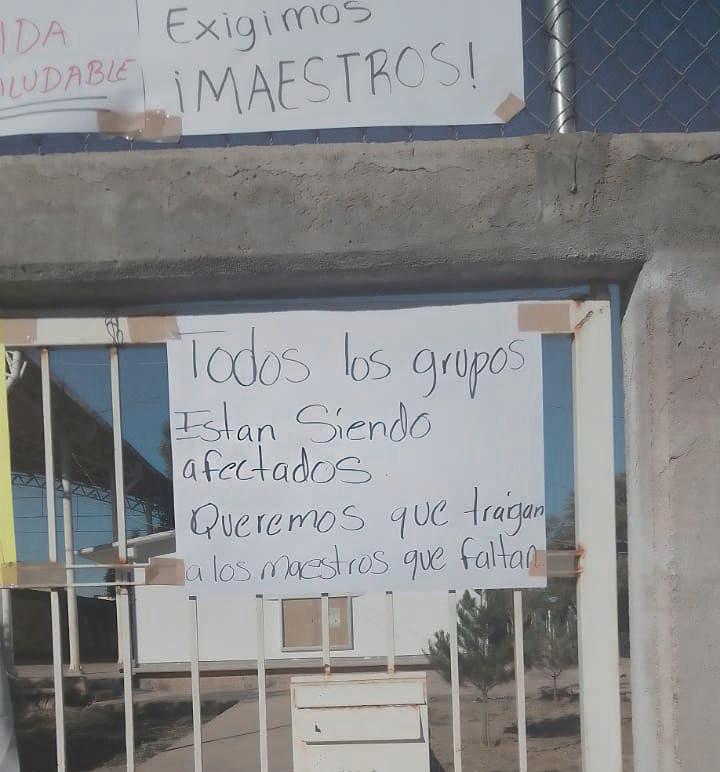 IDA
ALUDABLE
Exigimos
¡MAESTROS!
Todos los grupos
Estan Siendo
afectados.
Queremos que traigan
a los maestros que faltan.